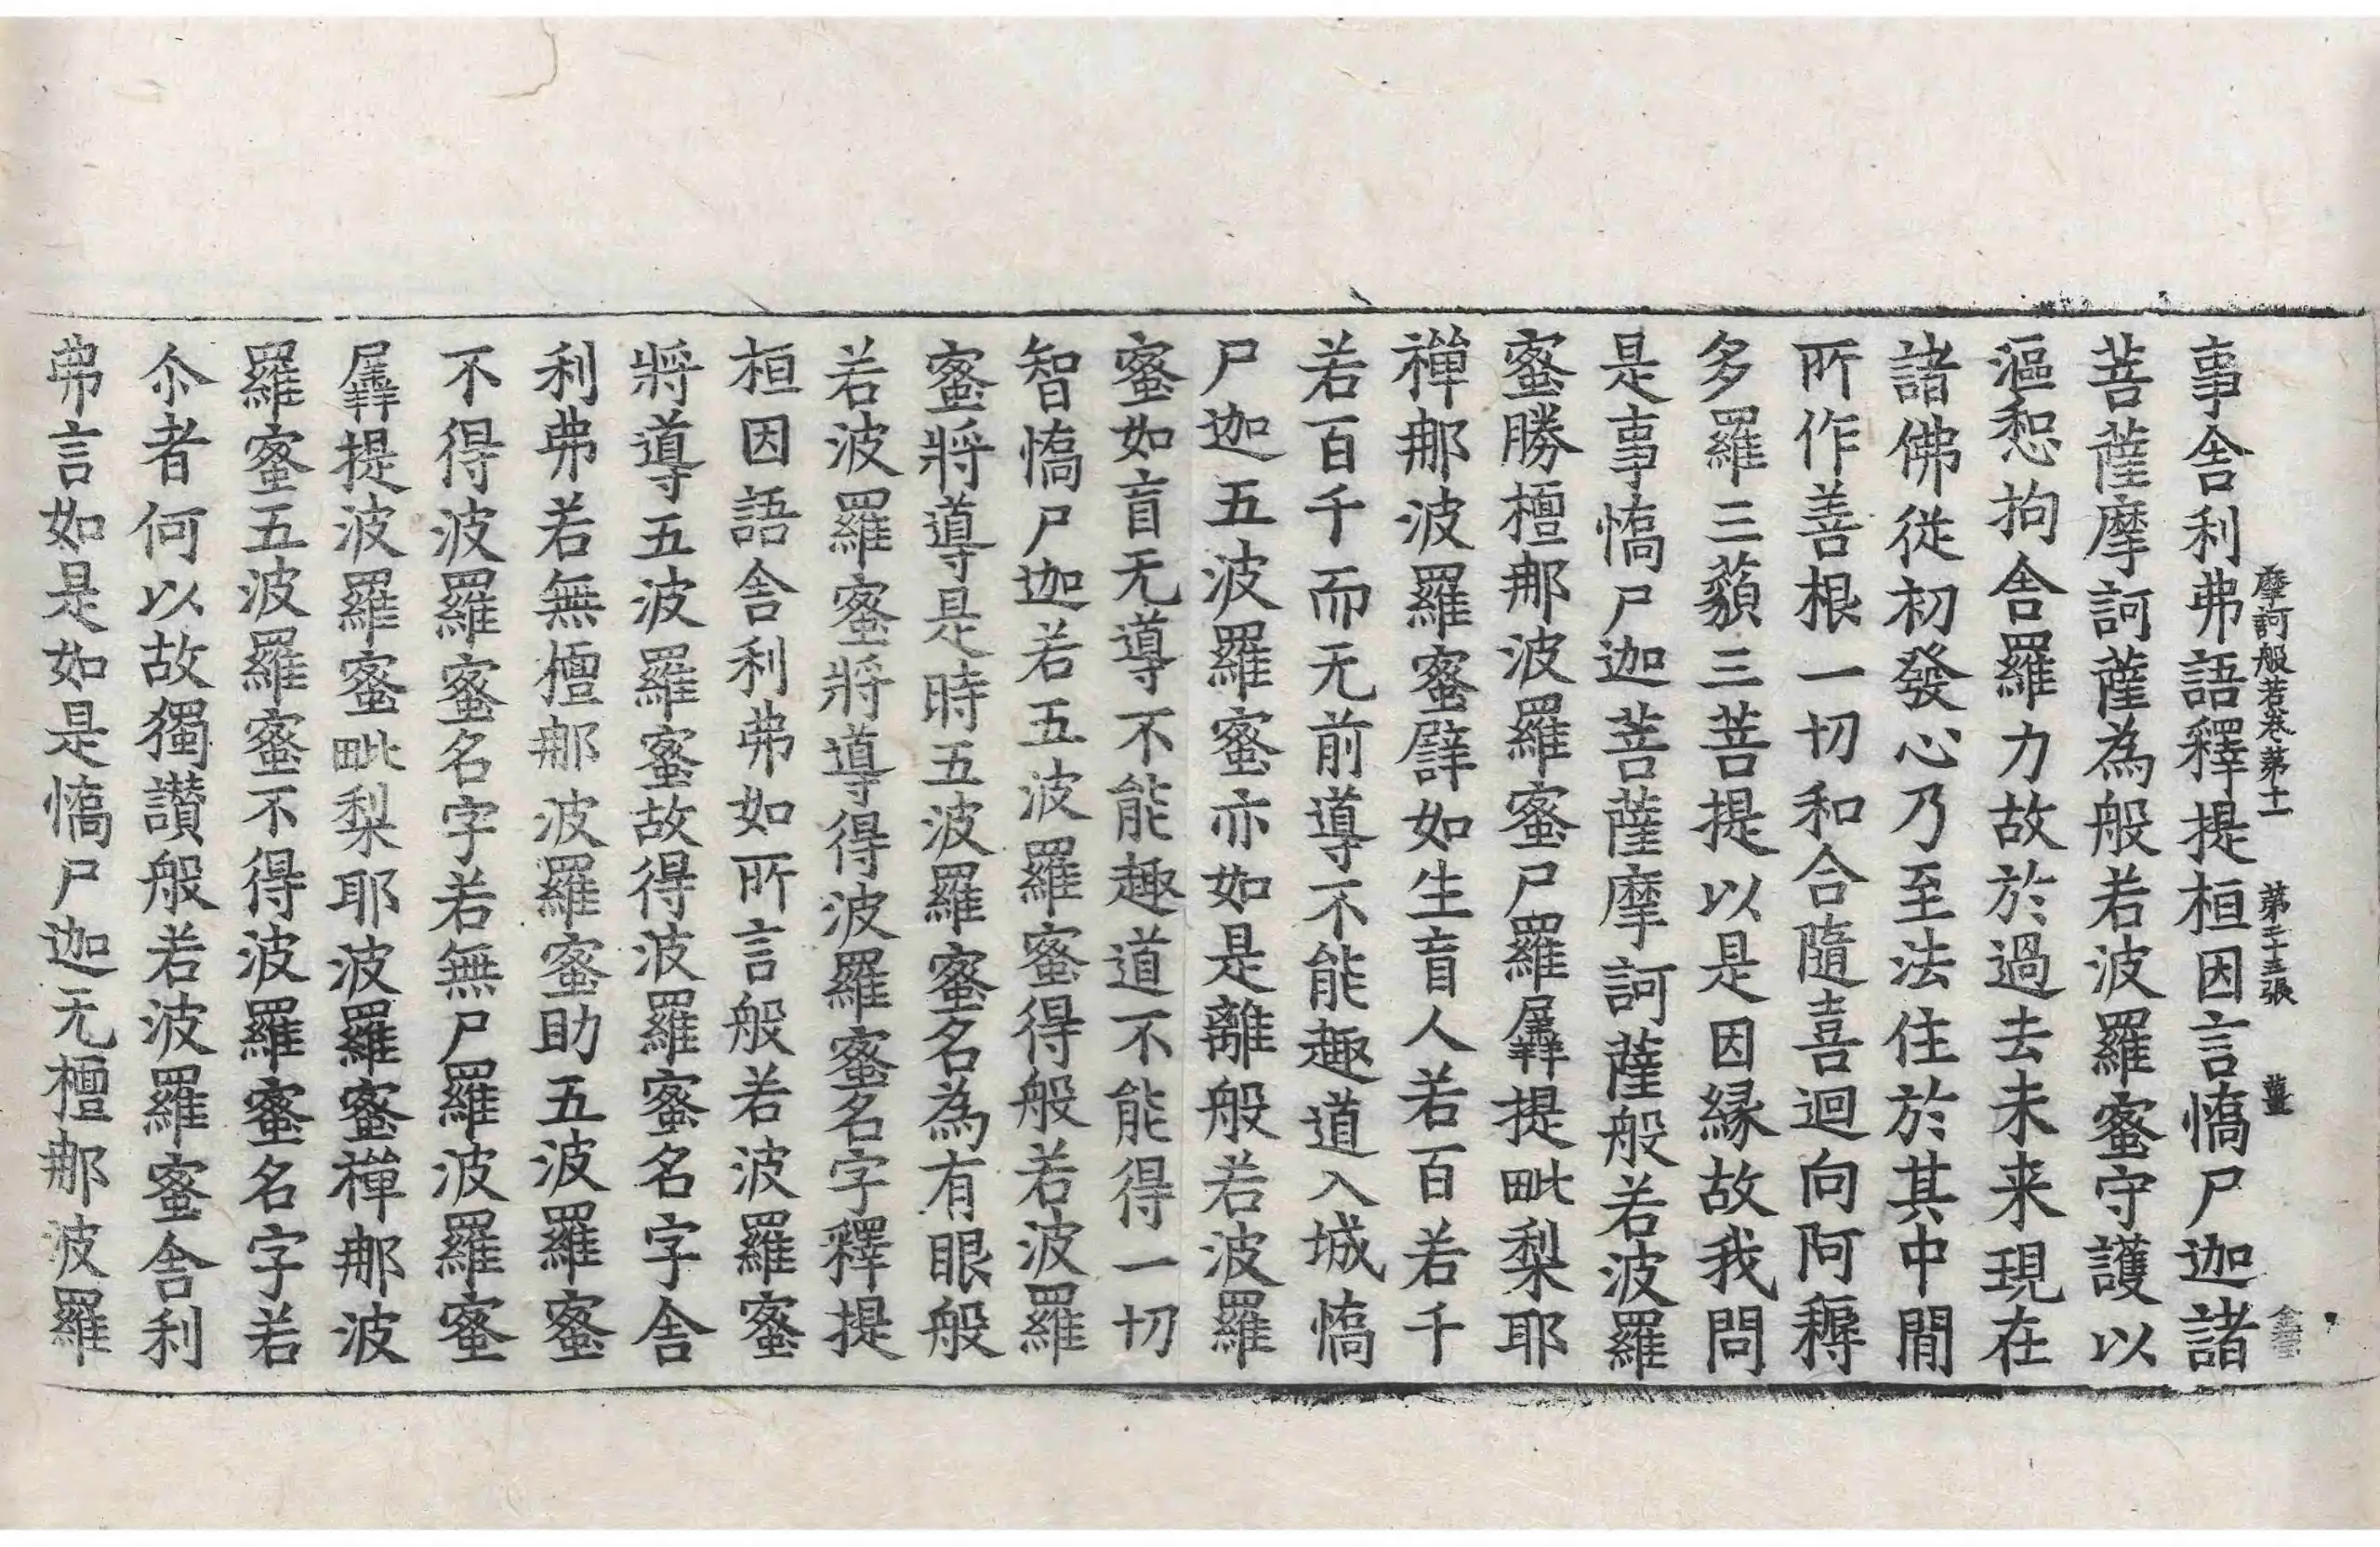 摩訶般若卷第十一　第二十五張　薑
事舍利弗語釋提桓因言憍尸迦諸
菩薩摩訶薩為般若波羅蜜守護以
漚惒拘舍羅力故於過去未来現在
諸佛從初發心乃至法住於其中閒
所作善根一切和合隨喜迴向阿耨
多羅三藐三菩提以是因緣故我問
是事憍尸迦菩薩摩訶薩般若波羅
蜜勝檀那波羅蜜尸羅羼提毗梨耶
禪那波羅蜜譬如生盲人若百若千
若百千而无前導不能趣道入城憍
尸迦五波羅蜜亦如是離般若波羅
蜜如盲无導不能趣道不能得一切
智憍尸迦若五波羅蜜得般若波羅
蜜將導是時五波羅蜜名為有眼般
若波羅蜜將導得波羅蜜名字釋提
桓因語舍利弗如所言般若波羅蜜
將導五波羅蜜故得波羅蜜名字舍
利弗若無檀那波羅蜜助五波羅蜜
不得波羅蜜名字若無尸羅波羅蜜
羼提波羅蜜毗梨耶波羅蜜禪那波
羅蜜五波羅蜜不得波羅蜜名字若
尒者何以故獨讚般若波羅蜜舍利
弗言如是如是憍尸迦无檀那波羅